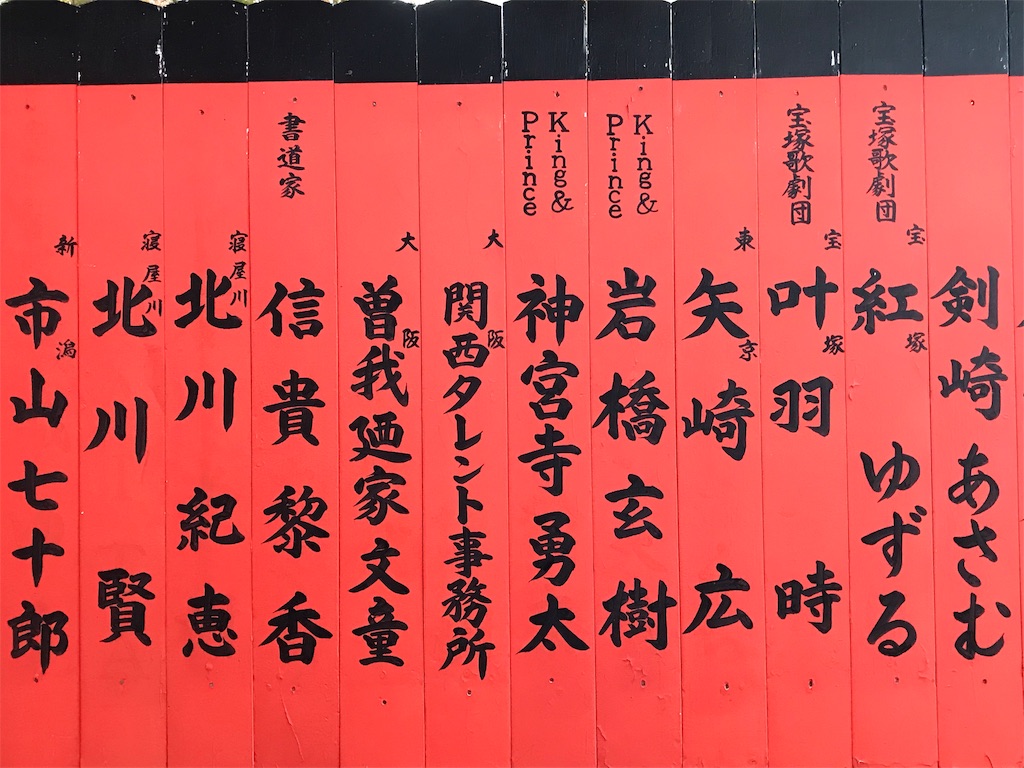 剣崎あさむ
宝塚歌劇団
宝塚
紅ゆずる
宝塚歌劇団
宝塚
叶羽時
東京
矢崎広
King&
Prince
岩橋玄樹
King&
Prince
神宮寺勇太
大阪
関西タレント事務所
大阪
曽我廼家文童
書道家
信貴黎香
寝屋川
北川紀恵
寝屋川
北川賢
新潟
市山七十郎